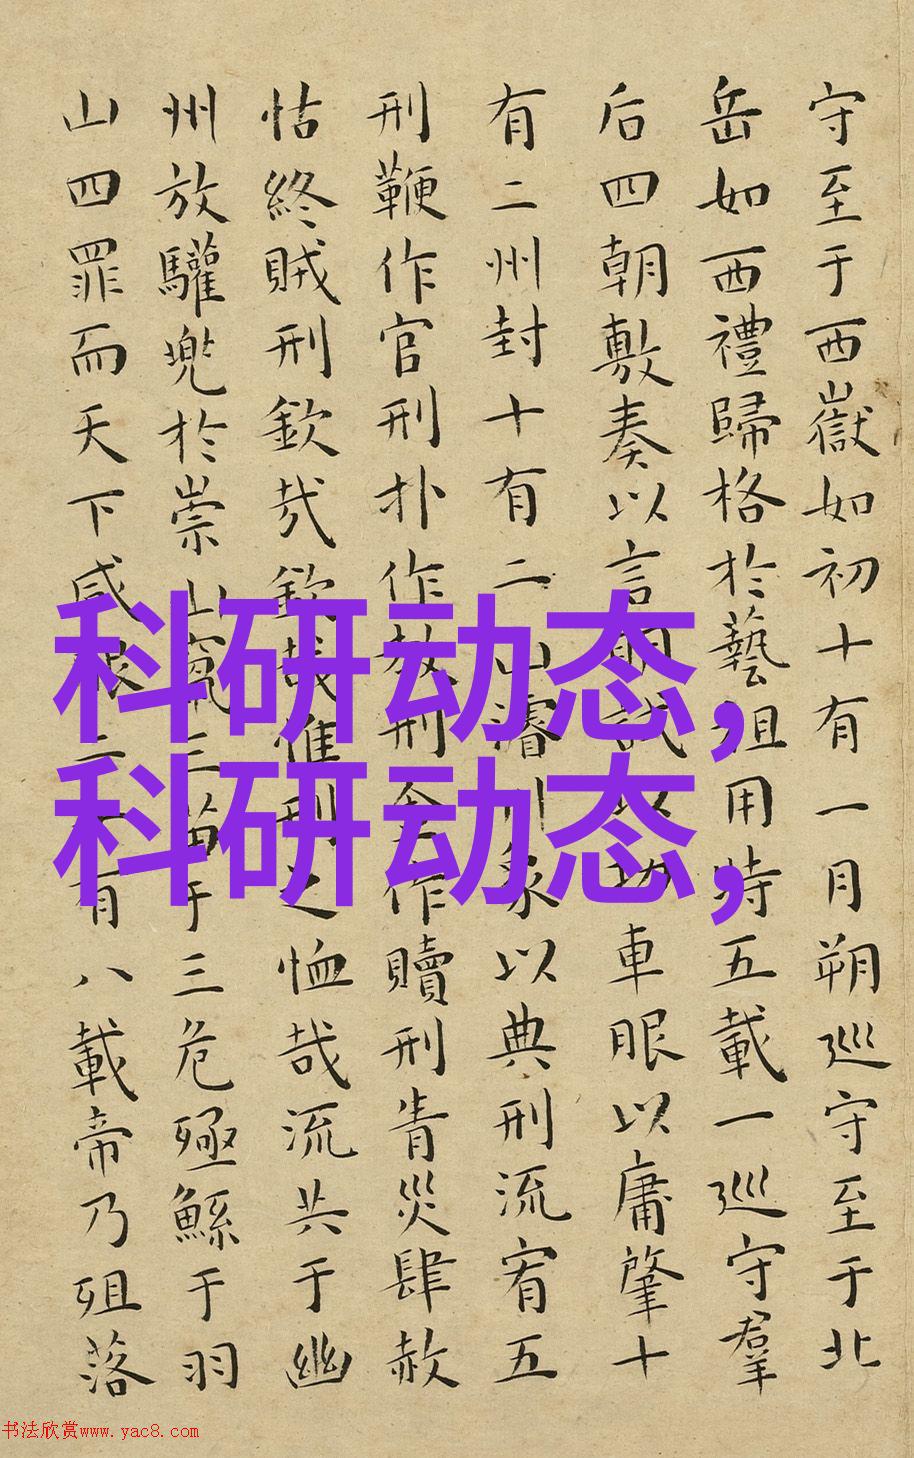 守至于西嶽如初十有一月朔巡守至于北
岳如西禮歸格於藝祖用特五載一巡守羣
后四朝敷奏以言明試以功車眼以庸肇十
有二州封十有二山濬川象以典刑流宥五
刑鞭作官刑扑作教刑金作贖刑眚災肆赦
怙終賊刑欽哉欽哉惟刑之恤哉流共于幽
州放驩兜於崇山竄三苗于三危殛鯀于羽
山四罪而天下咸服二十有八載帝乃殂落
科研动态,
科研动态,
书法欣赏www.yac8.com